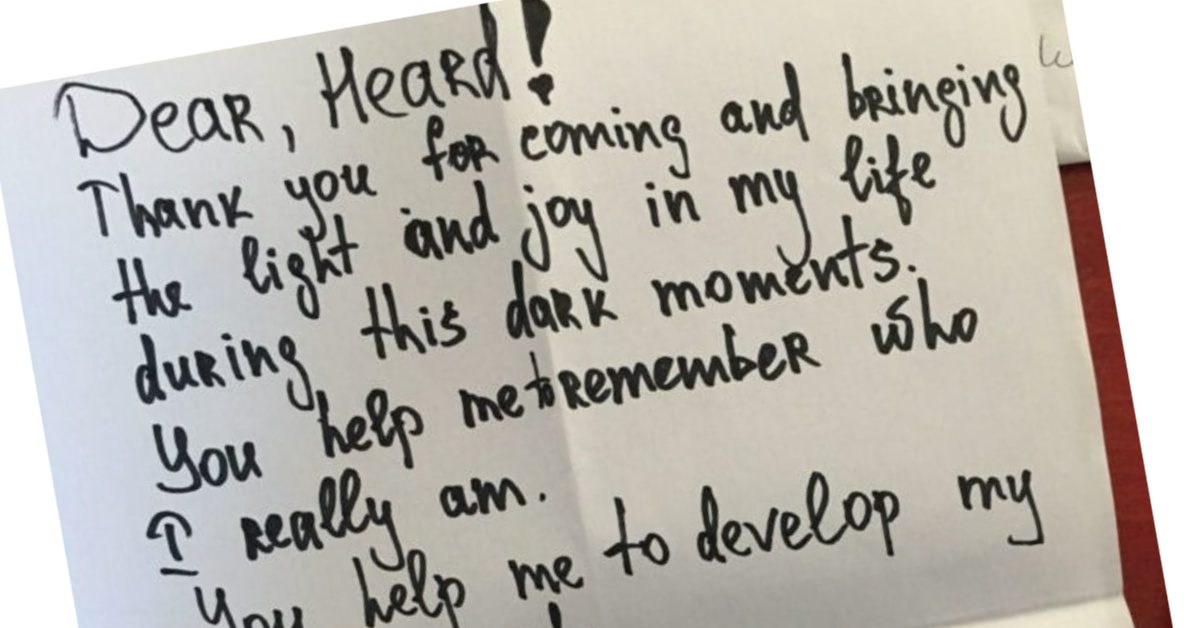 Dear, Heard!
Thank you for coming and bringing
the light and joy in my life
during this dark moments.
You help me to remember who
I really am.
You help me to develop my